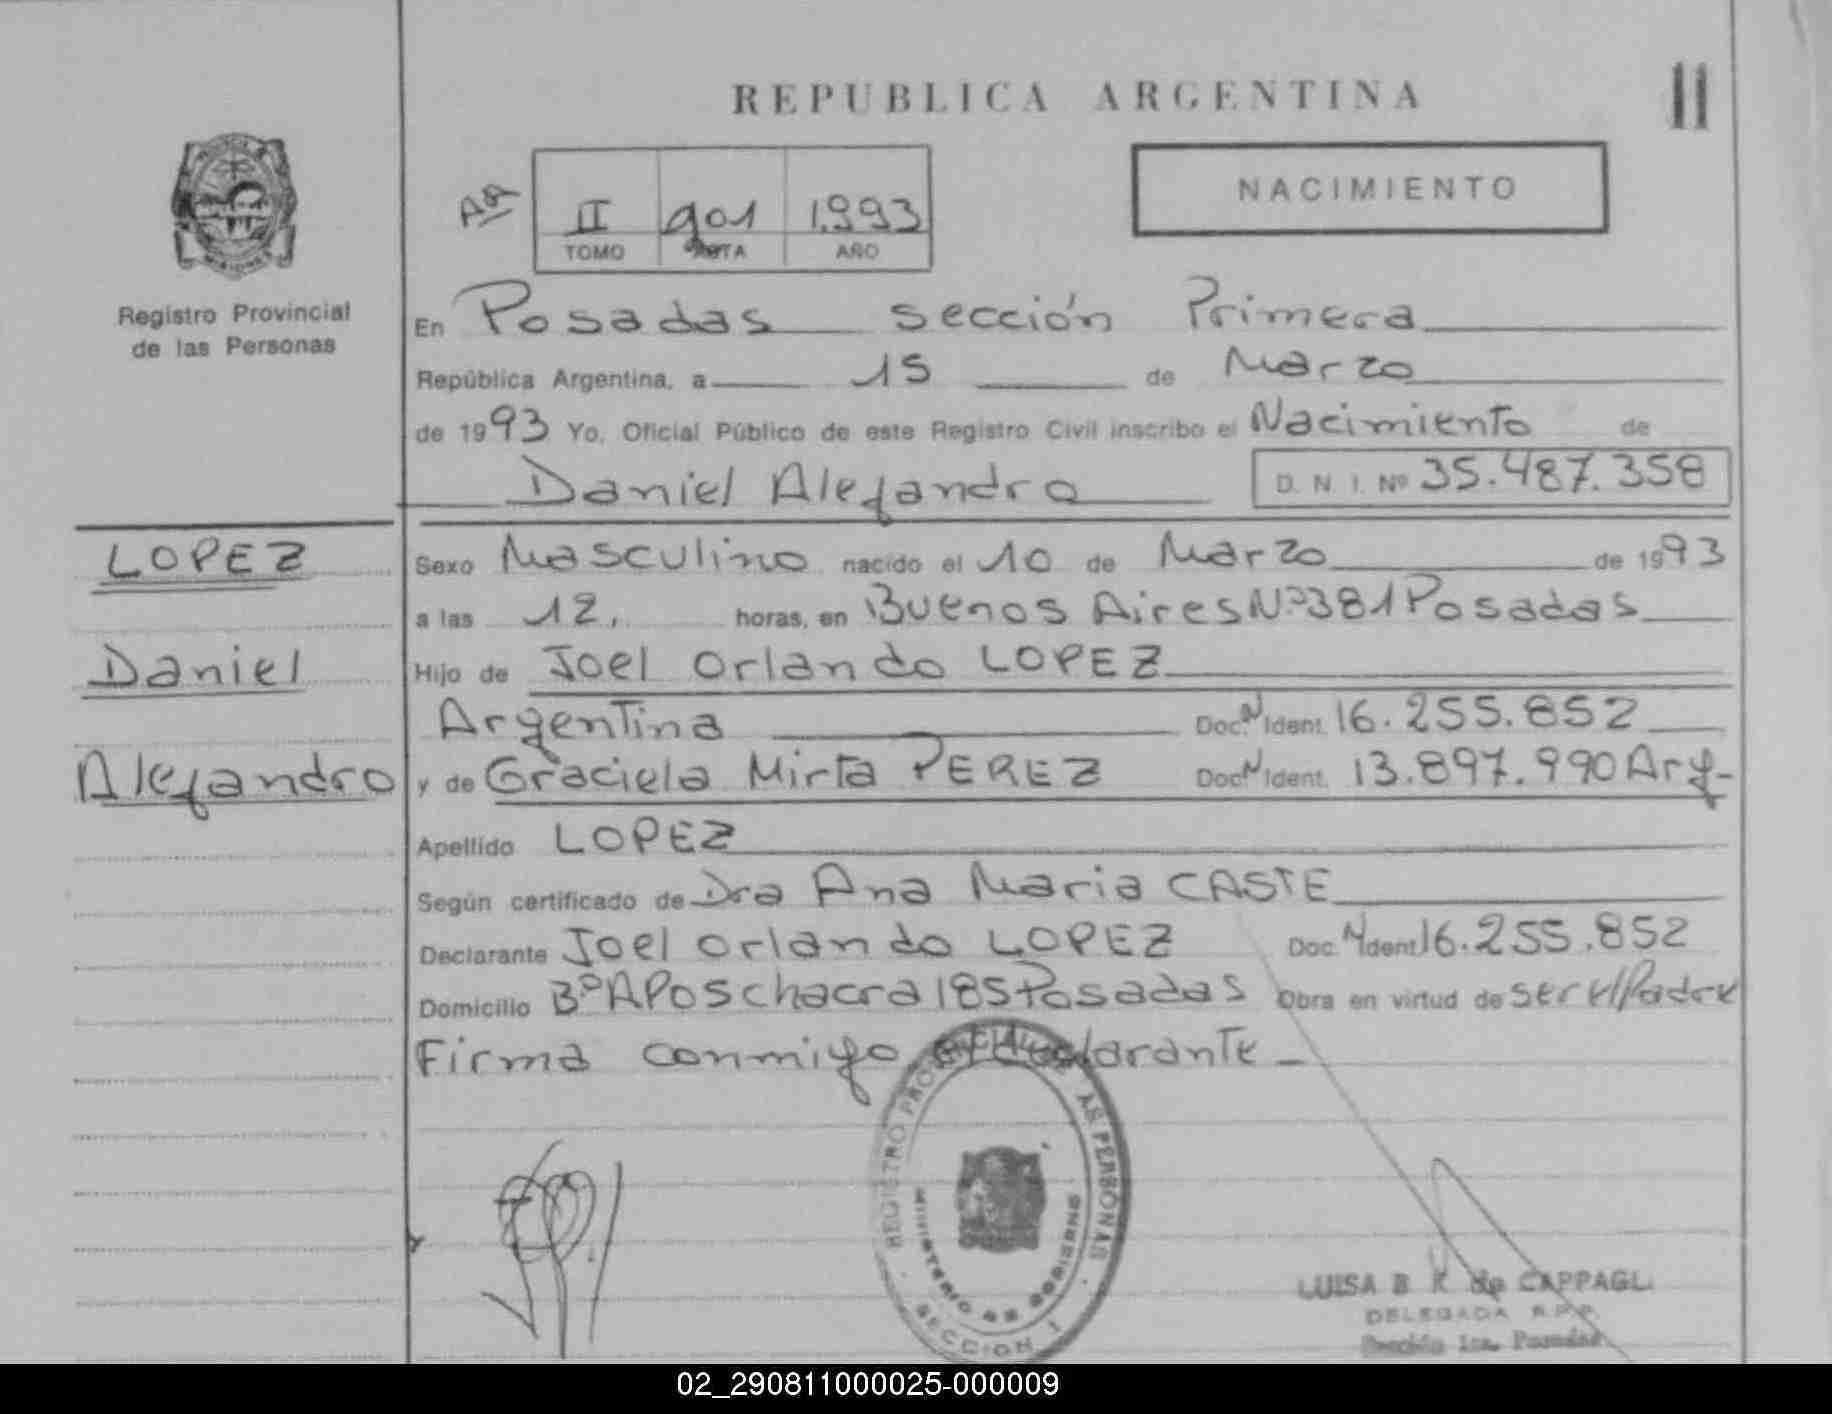 REPUBLICA ARGENTINA
II
NACIMIENTO
II 901 1.993
TOMO AÑO
MISIONES
Registro Provincial
de las Personas
En Posadas sección Primera
República Argentina, a 15 de Marzo
de 1993 Yo, Oficial Público de este Registro Civil inscribo el Nacimiento de
Daniel Alejandro D. N. I. Nº 35.487.358
LOPEZ
Daniel
Alejandro
Sexo Masculino nacido el 10 de Marzo de 1993
a las 12, horas, en Buenos Aires Nº 381 Posadas
Hijo de Joel Orlando LOPEZ
Argentina Doc. N Ident. 16.255.852
y de Graciela Mirta PEREZ Doc. N Ident. 13.897.990 Arg-
Apellido LOPEZ
Según certificado de Dra Ana Maria CASTE
Declarante Joel Orlando LOPEZ Doc. N Ident 16.255.852
Domicilio Bº APOS chacra 185 Posadas Obra en virtud de ser el Padre
Firma conmigo el declarante -
REGISTRO PROVINCIAL DE LAS PERSONAS
MINISTERIO DE GOBIERNO
SECCION 1
LUISA B K de CAPPAGLI
DELEGADA R.P.P.
Sección 1ra. Posadas
02_290811000025-000009